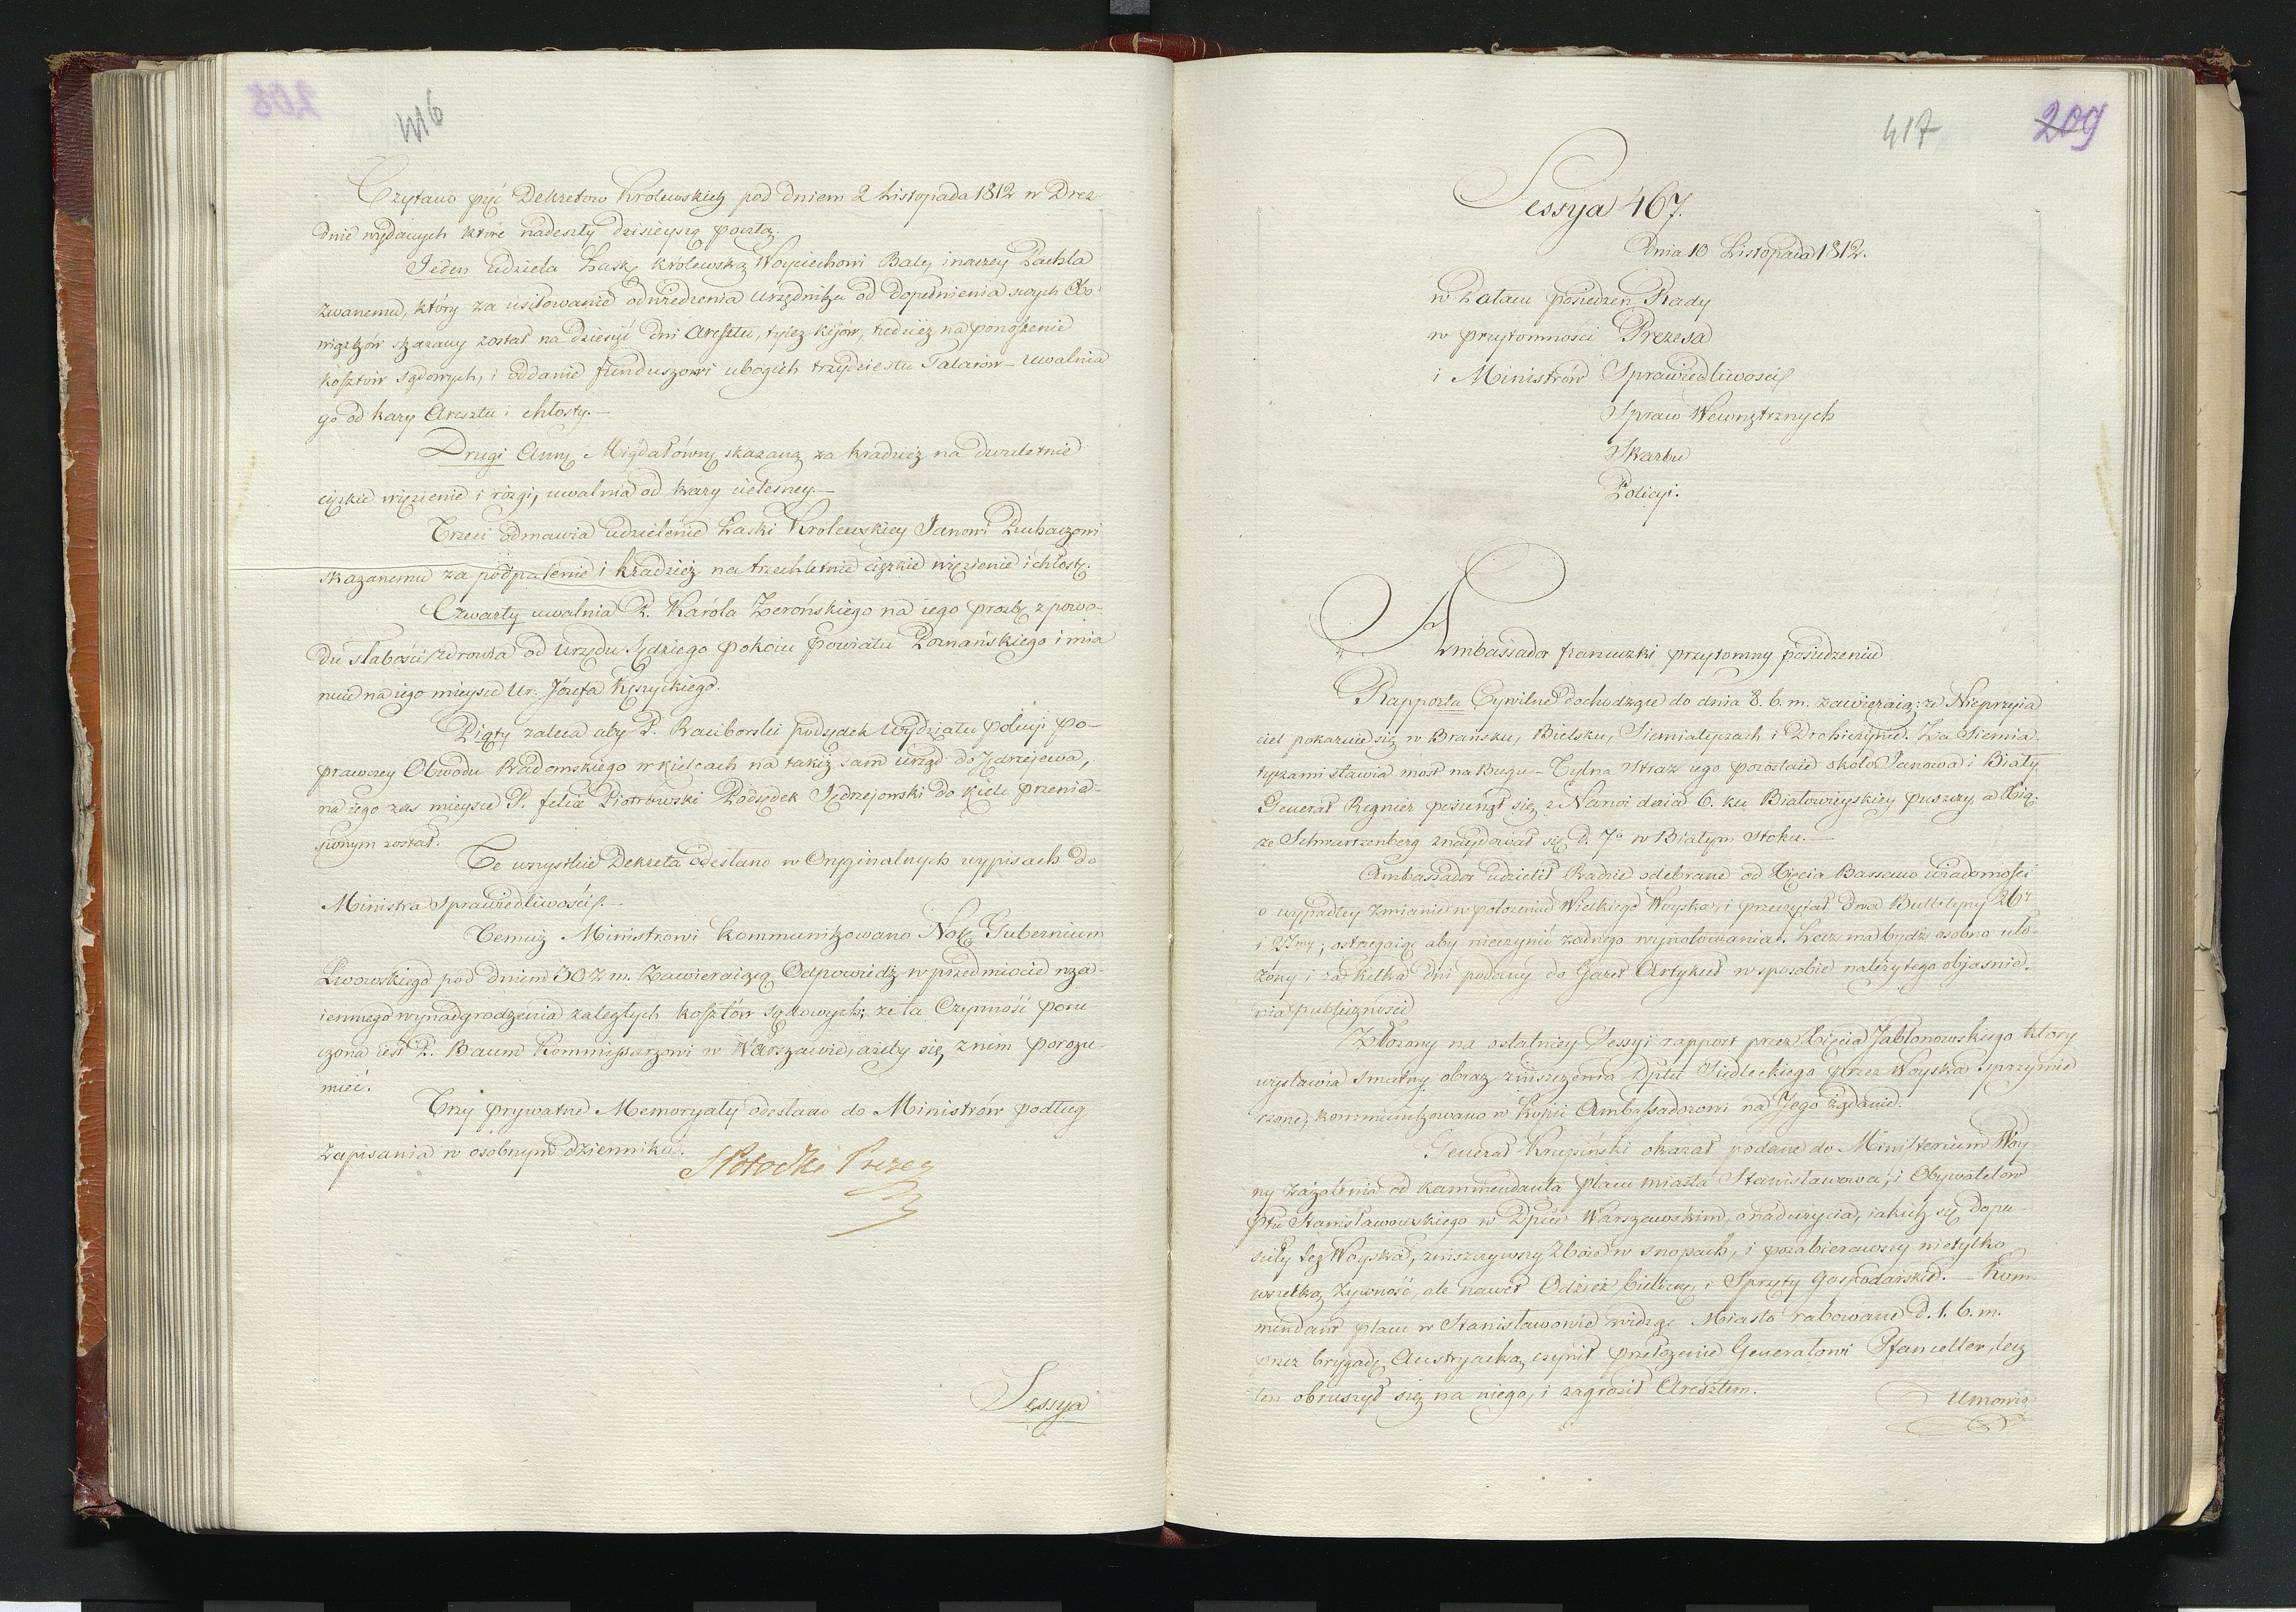 416
Czytano pięć Dekretow Krolewskich pod dniem 2 Listopada 1812 w Drez-
dnie wydanych które nadeszły dzisieyszą pocztą.
Jeden udziela Łaskę Królewską Woyciechowi Baley inaczey Pachla
zwanemu, który za usiłowanie odwiedzenia urzędnika od dopełnienia swych Obo-
wiązków skazany został na dziesięć dni Aresztu, tyleż kijów, tudzież na ponoszenie
kosztów sądowych, i oddanie funduszowi ubogich trzydziestu Talarów – uwalnia
go od kary Aresztu i chłosty. –
Drugi Annę Migdałównę skazaną za kradzież na dwuletnie
ciężkie więzienie i rózgi, uwalnia od kary cielesney. –
Trzeci odmawia udzielenie Łaski Krolewskiey Janowi Puchaczowi
skazanemu za podpalenie i kradzież na trzechletnie ciężkie więzienie i chłostę.
Czwarty uwalnia P. Karóla Zerońskiego na iego prozbę z powo-
du słabości zdrowia od Urzędu Sędziego pokoiu Powiatu Poznańskiego i mia
nuie na iego mieysce Ur. Józefa Kęszyckiego.
Piąty zaleca aby P. Raciborski podsędek Wydziału policyi po-
prawczey Obwodu Radomskiego w Kielcach na takiż sam urząd do Jędrzejewa,
na iego zas mieysce P. felix Piotrowski Podsędek Jędrzejowski do Kielc przenie-
sionym został.
Te wszystkie Dekreta odesłano w Oryginalnych wypisach do
Ministra Sprawiedliwości. –
Temuż Ministrowi kommunikowano Notę Gubernium
Lwowskiego pod dniem 30 z. m. Zawieraiącą Odpowiedź w przedmiocie wza-
iemnego wynadgrodzenia zaległych kosztów sądowych; że ta Czynność poru
czona iest P. Baum Kommissarzowi w Warszawie, ażeby się z nim porozu-
mieć.
Trzy prywatne Memoryały odesłano do Ministrów podług
zapisania w osobnym dzienniku.
SPotocki Prezes
Sessya
417
209
Sessya 467.
Dnia 10 Listopada 1812.
w Pałacu posiedzeń Rady
w przytomności Prezesa
i Ministrów Sprawiedliwości
Spraw Wewnętrznych
Skarbu
Policyi.
Ambassador francuzki przytomny posiedzeniu
Rapporta Cywilne dochodzące do dnia 8. b. m. zawieraią: że Nieprzyia
ciel pokazuie się w Brańsku, Bielsku, Siemiatyczach i Drohiczynie. Za Siemia-
tyczami stawia most na Bugu – Tylna Straż iego pozostaie około Janowa i Biały
Generał Regnier posunął się z Narwi dnia 6. ku Białowieyskiey puszczy, a Xią-
że Schwartzenberg znaydował się d. 7o w Białym Stoku. –
Ambassador udzielił Radzie odebrane od Xięcia Bassano wiadomości
o wypadłey zmianie w położeniu Wielkiego Woyska, i przeczytał dwa Bulletyny 26ty
i 27my; ostrzegaiąc aby nieczynić żadnego wynotowania. Lecz ma bydź osobno uło-
żony i za kilka dni podany do Gazet Artykuł w sposobie należytego objasnie-
nia publiczności
Złożony na ostatniey Sessyi rapport przez Xięcia Jabłonowskiego który
wystawia smutny obraz zniszczenia Dptu Siedleckiego przez Woyska sprzymie
rzone, kommunikowano w Kopii Ambassadorowi na Jego żądanie.
Generał Krupiński okazał podane do Ministerium Woy-
ny zażalenia od kammendanta placu miasta Stanisławowa, i Obywatelów
Ptu Stanisławowskiego w Dpcie Warszawskim, o nadużycia, iakich się dopu-
ściły też Woyska, zniszczywszy Zboże w snopach, i pozabierawszy nietylko
wszelką żywność, ale nawet Odzież bieliznę, i Sprzęty Gospodarskie. – Kom-
mendant placu w Stanisławowie widząc Miasto rabowane d. 1. b. m.
przez brygadę Austryacką, czynił przełożenie Generałowi Pfanceller, lecz
ten obruszył się na niego, i zagroził Aresztem.
Umowią